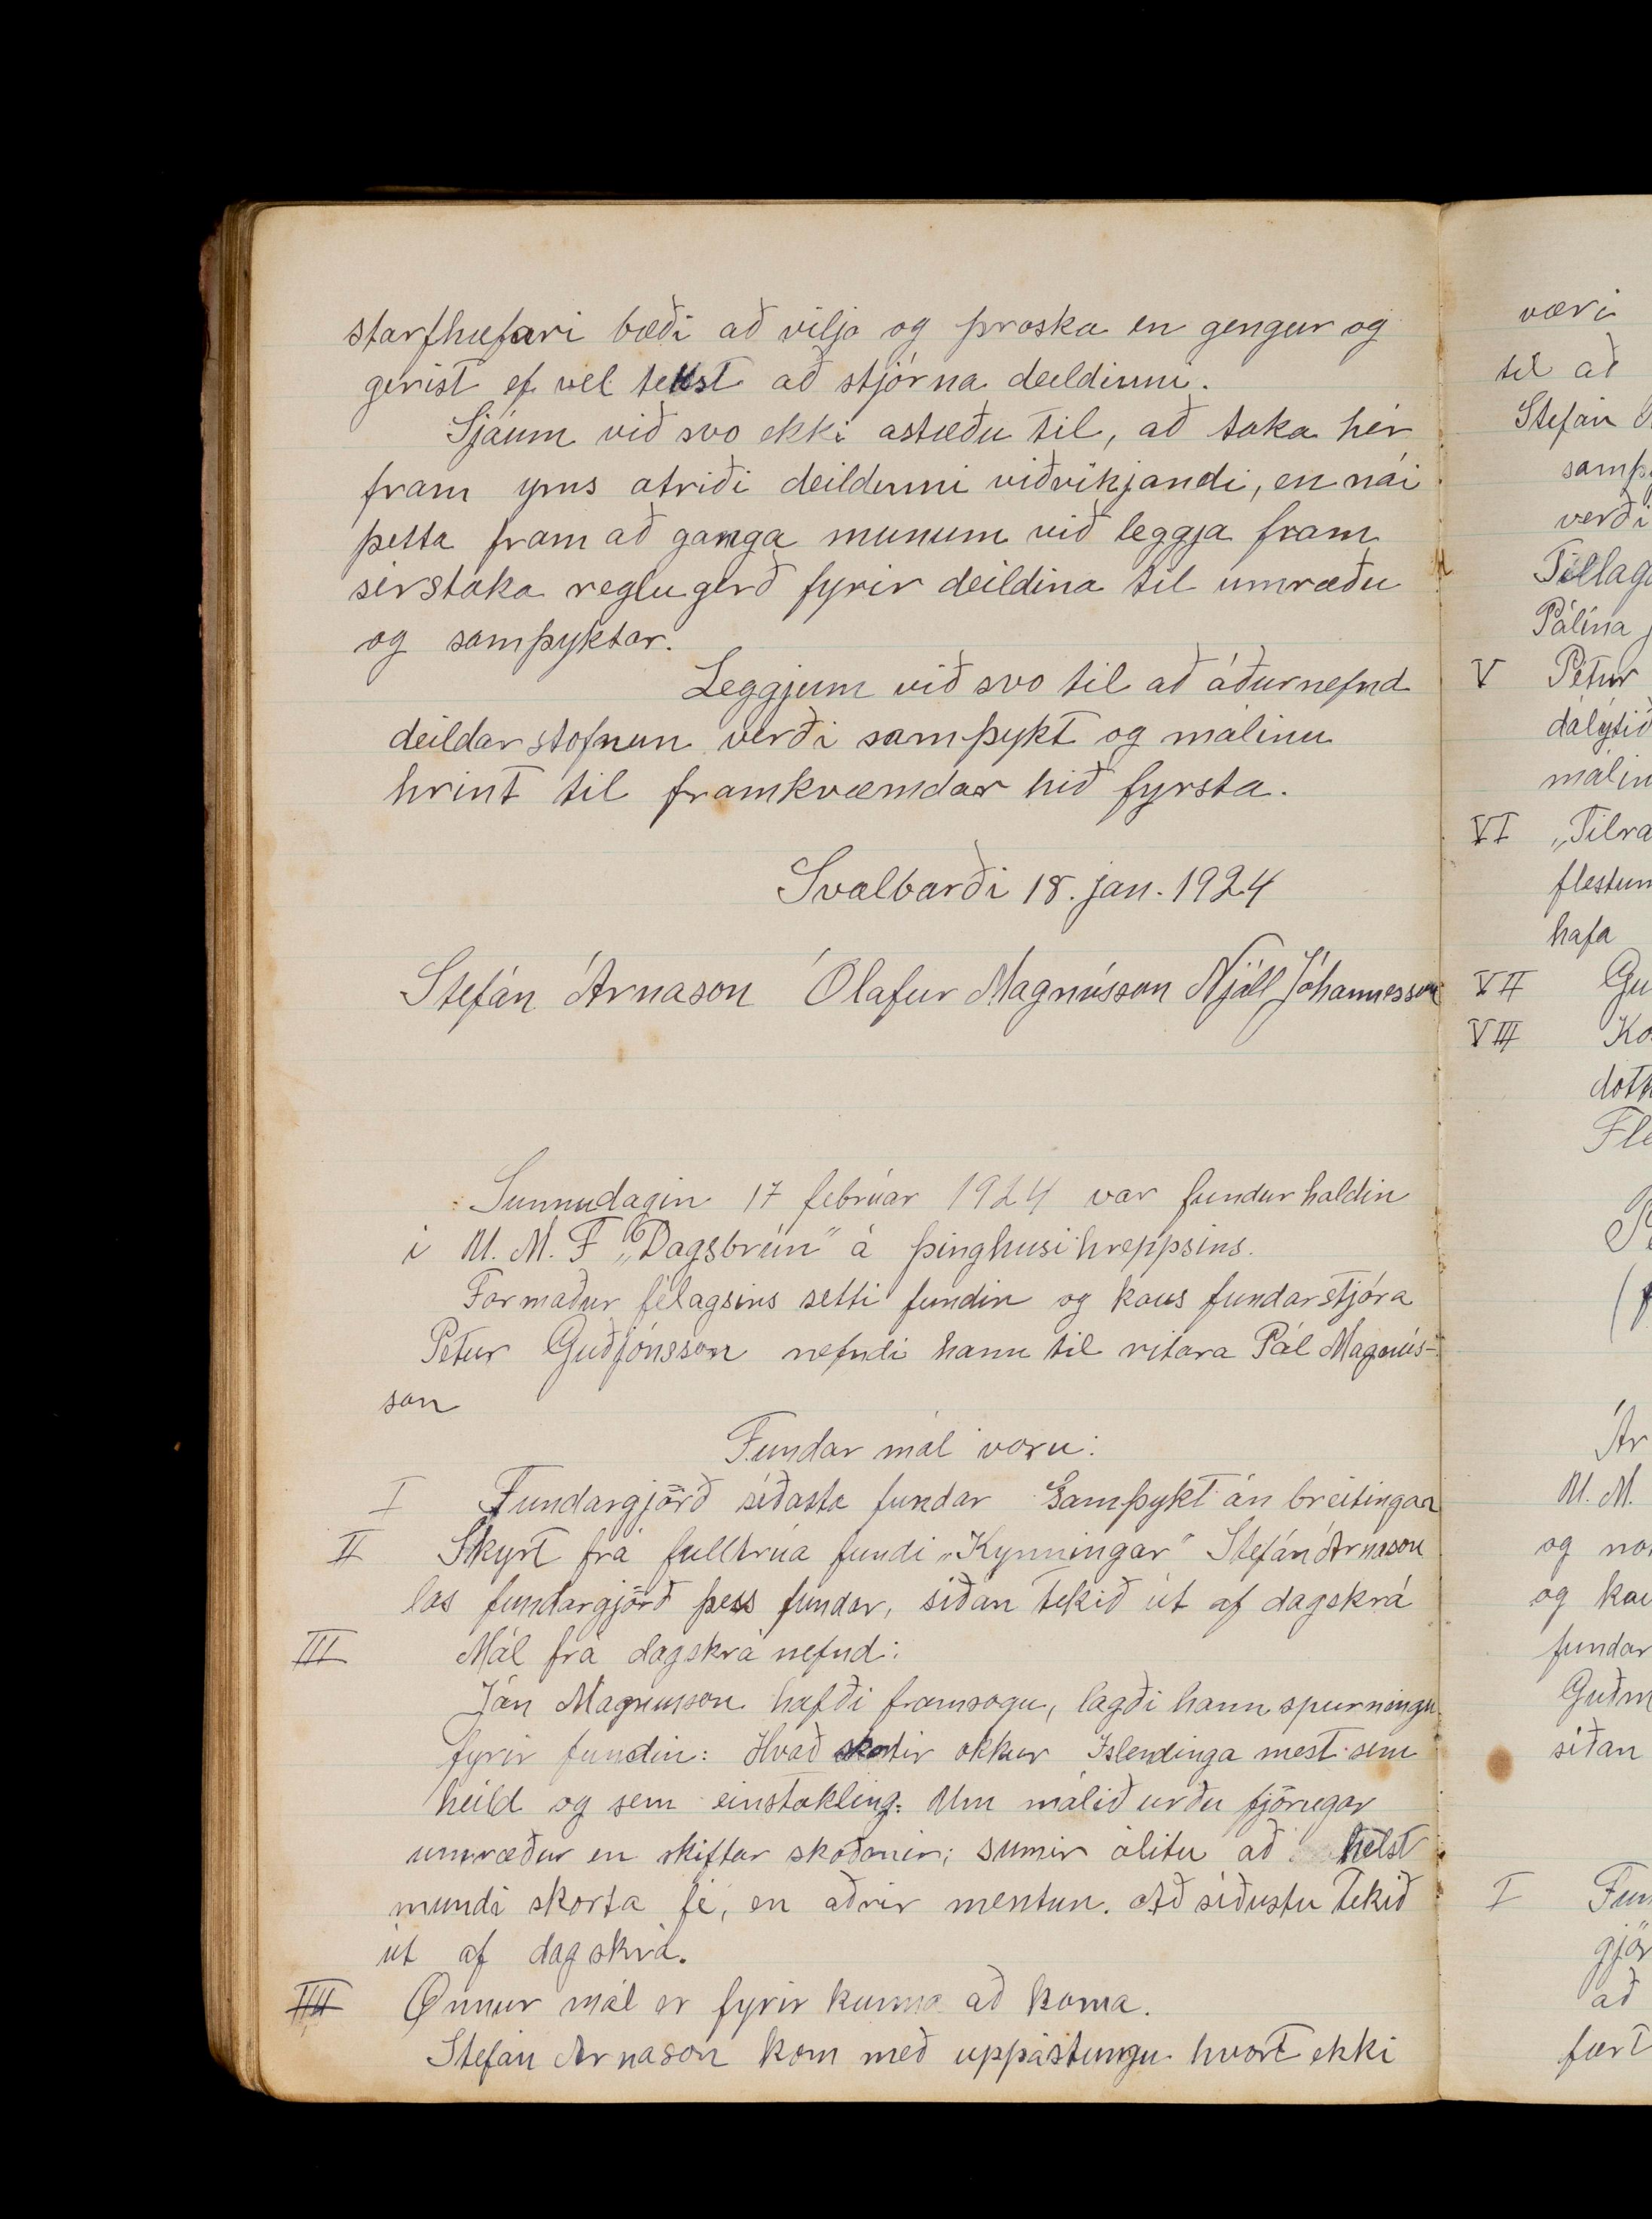 starfhæfari bæði að vilja og þroska en gengur og
gerist ef vel tekst að stjórna deildinni.
Sjáum við svo ekki astæðu til, að taka hér
fram yms atriði deildinni viðvíkjandi, en nái
þetta fram að ganga munum við leggja fram
sérstaka reglugerð fyrir deildina til umræðu
og samþyktar.
Leggjum við svo til að áðurnefnd
deildarstofnun verði samþykt og málinu
hrint til framkvæmdar hið fyrsta.
Svalbarði 18. jan. 1924
Stefán Árnason Ólafur Magnússon Njáll Jóhannesson
Sunnudagin 17 febrúar 1924 var fundur haldin
í U. M. F „Dagsbrún" á þinghusi hreppsins.
Formaður félagsins setti fundin og kaus fundarstjóra
Pétur Guðjónsson nefndi hann til ritara Pál Magnús-
son
Fundar mál voru:
I Fundargjörð síðasta fundar Samþykt án breitingar
II Skyrt frá fulltrúa fundi „Kynningar" Stefán Árnason
las fundargjörð þess fundar, síðan tekið út af dagskrá
III Mál frá dagskrá nefnd:
Ján Magnusson hafði framsogu, lagði hann spurningu
fyrir fundin: Hvað skortir okkur Islendinga mest sem
heild og sem einstakling. Um málið urðu fjörugar
umræður en skiftar skoðanir; sumir álitu að helst
mundi skorta fé, en aðrir mentun. Að síðustu tekið
út af dagskrá.
IIII Önnur mál er fyrir kunna að koma.
Stefán Arnason kom með uppástungu hvort ekki
væri
til að
Stefán
verði
Pálína
V Pétur
VI
hafa
VII
VIII
Ár
U. M.
og
og
fundar
síðan
I
að